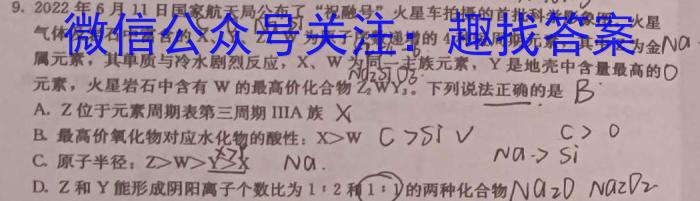 9. 2022 年 6 月 11 日国家航天局公布了“祝融号”火星车拍摄的首批科 火星
微信公众号关注：趣找答案
气体 石中 X、Y、Z、W 为 4 Na
属元素，其单质与冷水剧烈反应，X、W 为同一主族元素，Y 是地壳中含量最高的 O
Na₂SiO₃
元素，火星岩石中含有 W 的最高价化合物 Z₂WY₃。下列说法正确的是 B
A. Z 位于元素周期表第三周期 IIIA 族 X
B. 最高价氧化物对应水化物的酸性：X>W C>Si √ C> O
C. 原子半径：Z>W>Y>X Na. X>Y Na-> Si
D. Z 和 Y 能形成阴阳离子个数比为 1∶2 和 1∶1 的两种化合物 Na₂O Na₂O₂